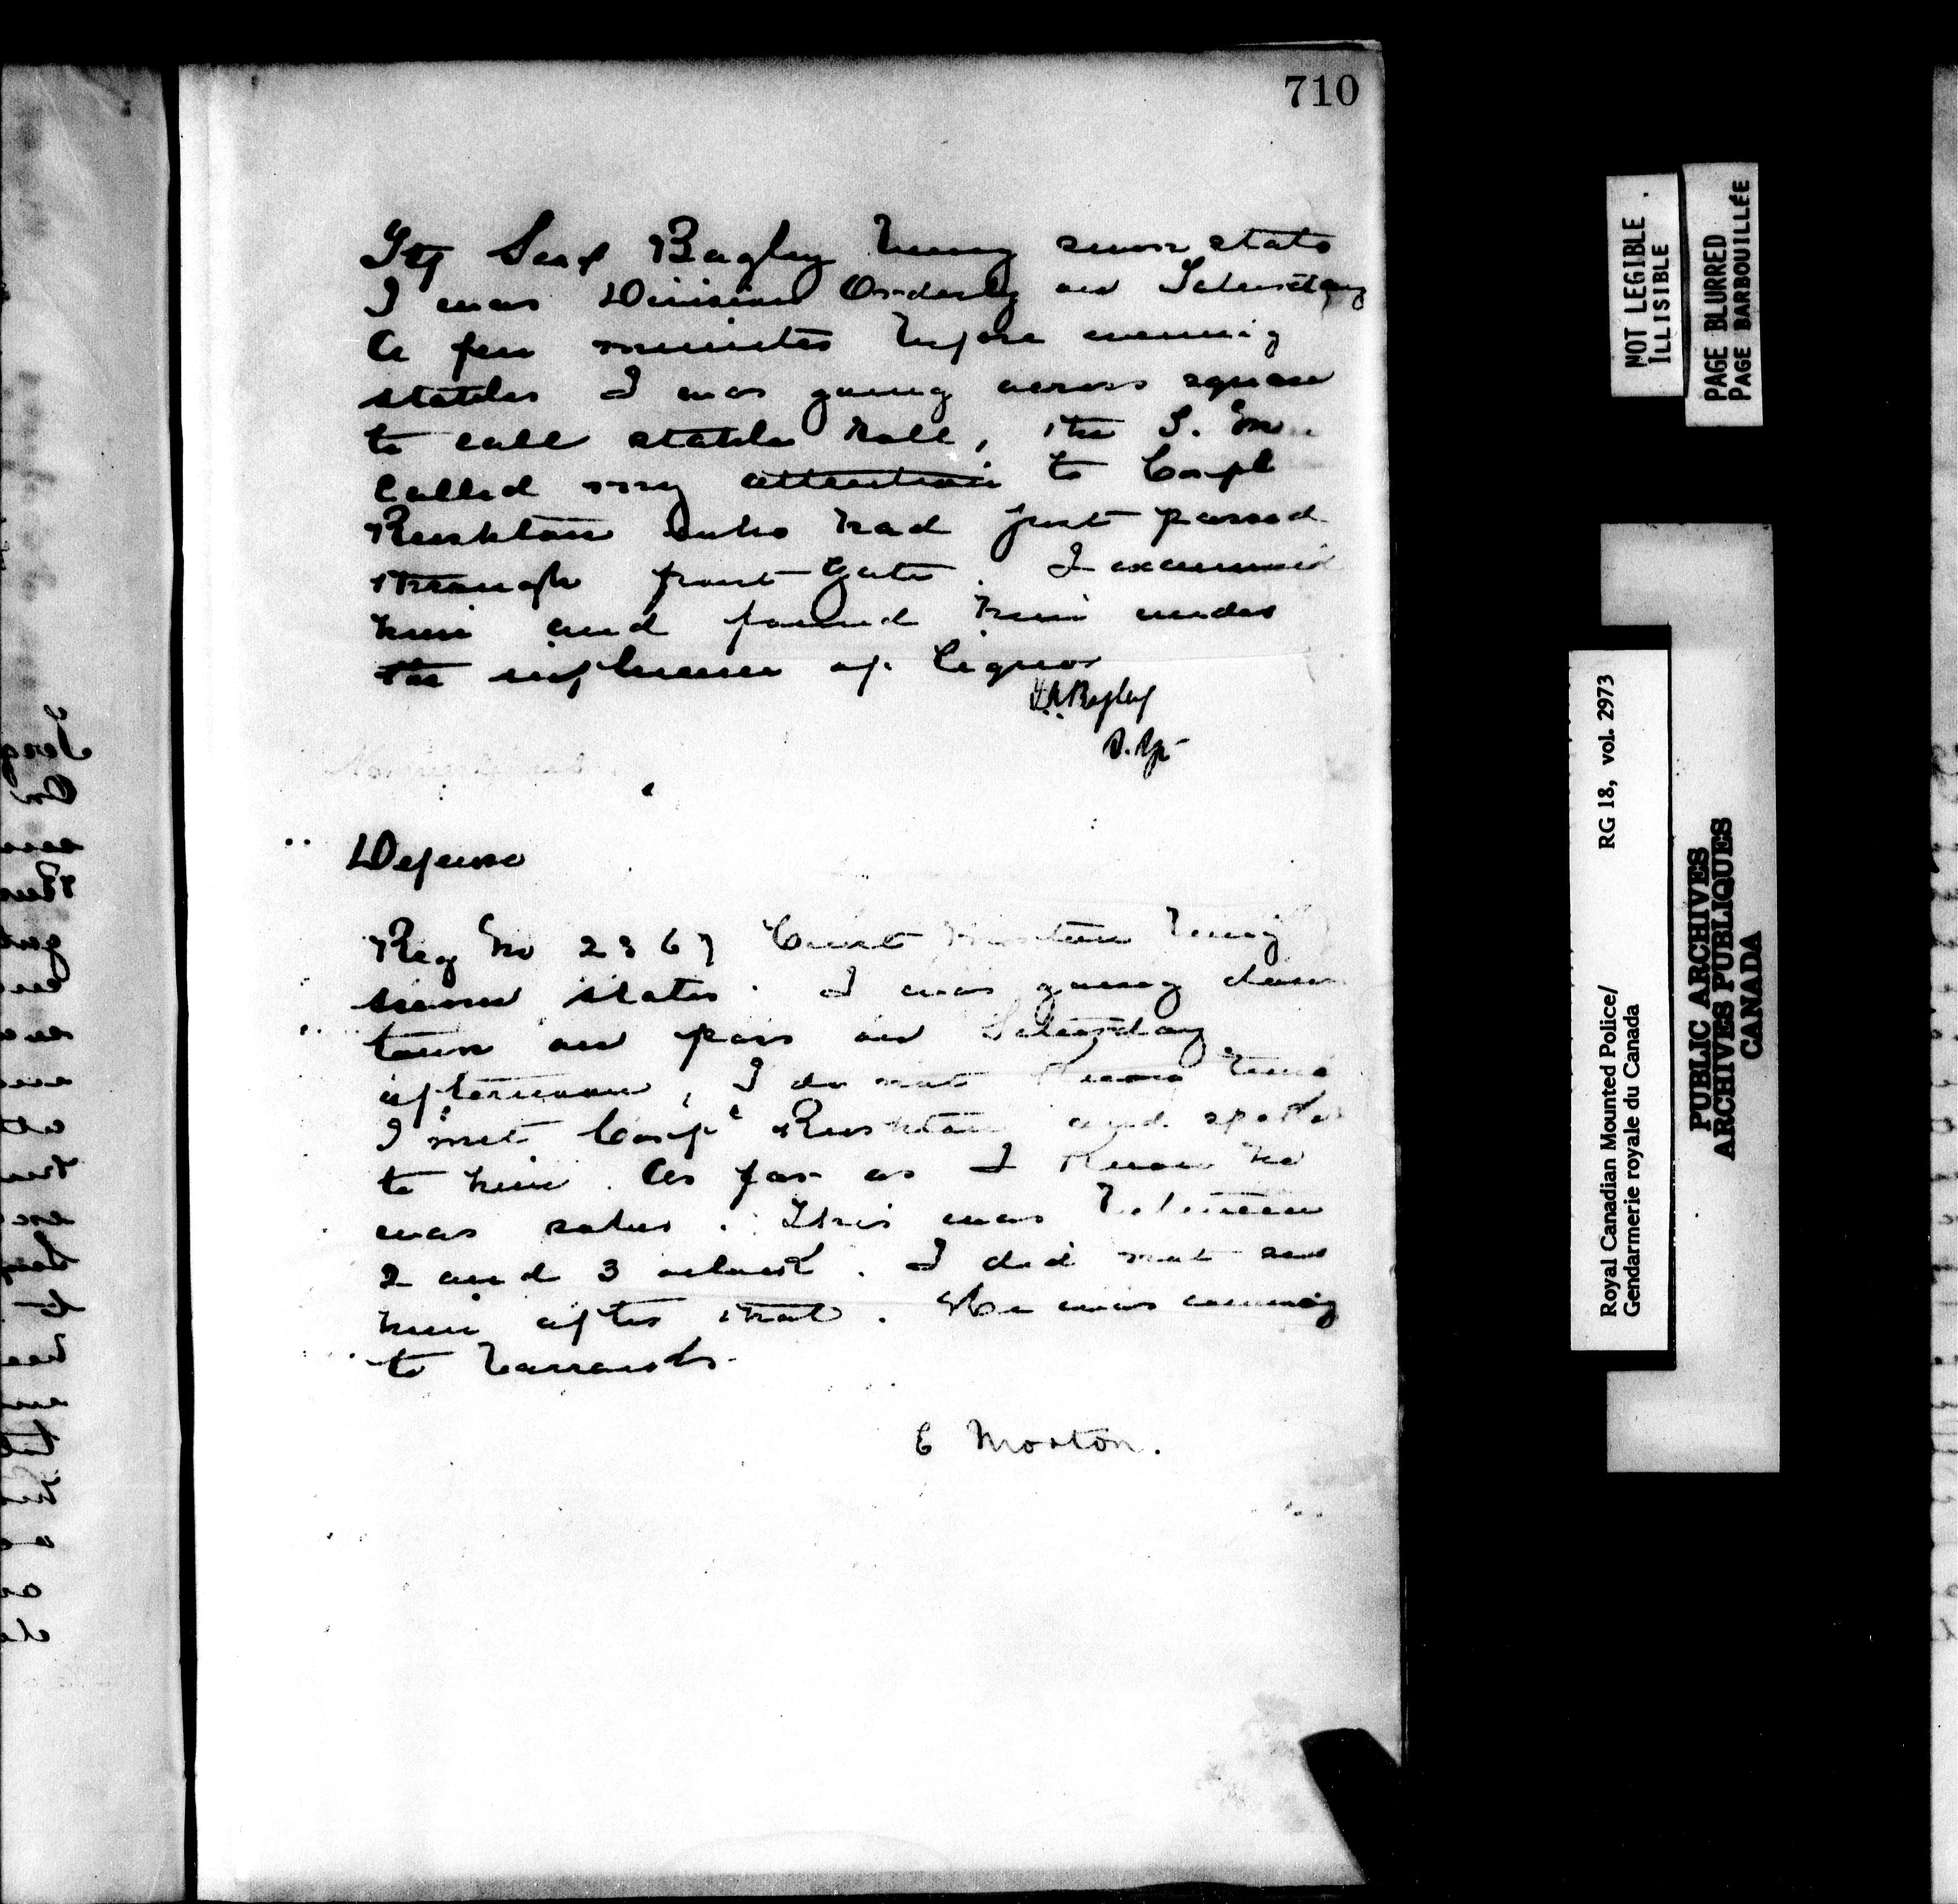 710
Sergt Bagley being sworn states
I was Division Orderly on Saturday
A few minutes before evening
stables I was going across square
to call stable roll, the S. M
called my attention to Corpl
Rushton who had just passed
through front Gate. I examined
him and found him under
the influence of liquor
Bagley
Defense
Reg No 2367 Const Morton being
sworn states. I was going down
town on pass on Saturday
afternoon, I do not know time
I met Corpl Rushton and spoke
to him. As far as I know he
was sober. This was between
2 and 3 oclock. I did not see
him after that. He was coming
to barracks.
E Morton.
NOT LEGIBLE
ILLISIBLE
PAGE BLURRED
PAGE BARBOUILLÉE
Royal Canadian Mounted Police/ RG 18, vol. 2973
Gendarmerie royale du Canada
PUBLIC ARCHIVES
ARCHIVES PUBLIQUES
CANADA